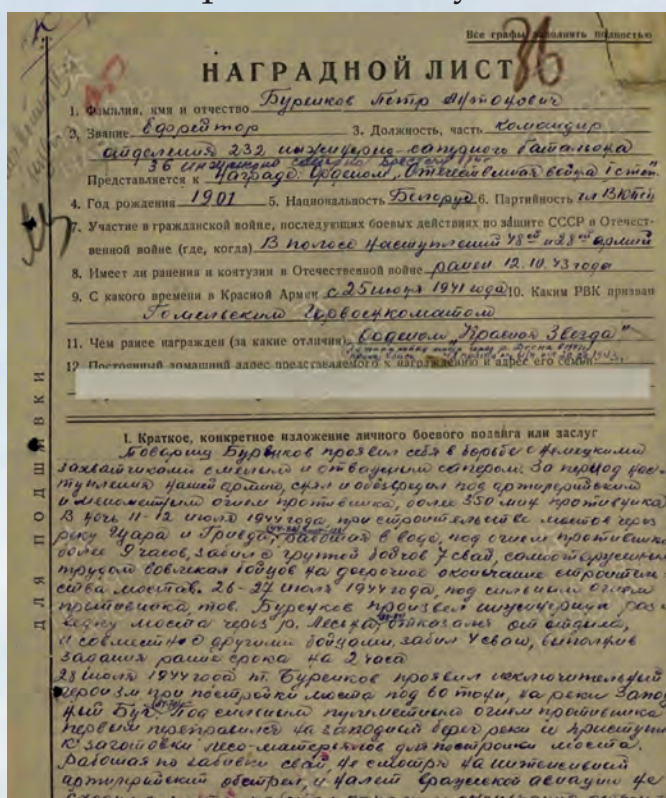 Все графы заполнять полностью
НАГРАДНОЙ ЛИСТ
36
1. Фамилия, имя и отчество Буренков Петр Антонович
2. Звание Ефрейтор 3. Должность, часть командир
отделения 232 инженерно-саперного батальона
36 инженерно саперной
Представляется к награде Орденом „Отечественная война I степ.
4. Год рождения 1901 5. Национальность Белорус 6. Партийность чл ВКП(б)
7. Участие в гражданской войне, последующих боевых действиях по защите СССР в Отечест-
венной войне (где, когда) В полосе наступлений 48ой и 28ой армий
8. Имеет ли ранения и контузии в Отечественной войне ранен 12.10.43 года
9. С какого времени в Красной Армии с 25 июня 1941 года 10. Каким РВК призван
Гомельским Горвоенкоматом
11. Чем ранее награжден (за какие отличия) Орденом „Красная Звезда"
12. Постоянный домашний адрес представляемого к награждению и адрес его семьи
ДЛЯ ПОДШИВКИ
I. Краткое, конкретное изложение личного боевого подвига или заслуг
Товарищ Буренков проявил себя в борьбе с немецкими
захватчиками смелым и отважным сапером. За период нас-
тупления нашей армии, снял и обезвредил под артиллерийским
и минометным огнем противника, более 350 мин противника
В ночь 11-12 июля 1944 года, при строительстве мостов через
реку Щара и Гривда, работая в воде, под огнем противника
более 9 часов, забил с группой бойцов 7 свай, самоотверженным
трудом вовлекал бойцов на досрочное окончание строитель
ства мостов. 26-27 июля 1944 года, под сильным огнем
противника, тов. Буренков произвел инженерную раз-
ведку моста через р. Лесьна, отказался от отдыха,
и совместно с другими бойцами, забил 4 сваи, выполнив
задания раньше срока на 2 часа
28 июля 1944 года т. Буренков проявил исключительный
героизм при постройки моста под 60 тонн, на реки Запад
ный Буг. Под сильным пулеметным огнем противника
первым переправился на западный берег реки и приступил
к заготовки лесо-материалов для постройки моста.
Работая по забивки свай, не смотря на интенсивный
артиллерийский обстрел, и налет вражеской авиации не